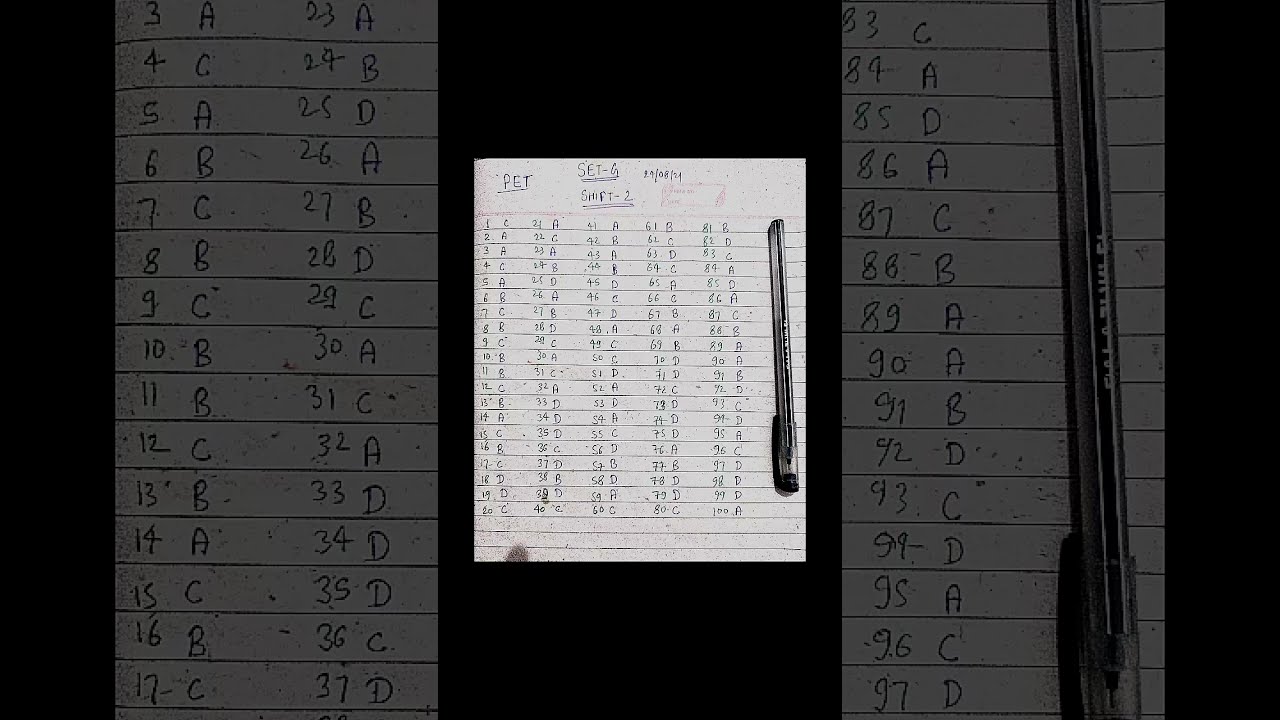 SET-G 24/08/21
PET
SHIFT-2
1 C 21 A 41 A 61 B 81 B
2 A 22 C 42 B 62 C 82 D
3 A 23 A 43 A 63 D 83 C
4 C 24 B 44 B 64 C 84 A
5 A 25 D 45 D 65 A 85 D
6 B 26 A 46 C 66 C 86 A
7 C 27 B 47 D 67 B 87 C
8 B 28 D 48 A 68 A 88 B
9 C 29 C 49 C 69 B 89 A
10 B 30 A 50 C 70 D 90 A
11 B 31 C 51 D 71 D 91 B
12 C 32 A 52 A 72 C 92 D
13 B 33 D 53 D 73 D 93 C
14 A 34 D 54 A 74 D 94 D
15 C 35 D 55 C 75 D 95 A
16 B 36 C 56 D 76 A 96 C
17 C 37 D 57 B 77 B 97 D
18 D 38 B 58 D 78 D 98 D
19 D 39 D 59 A 79 D 99 D
20 C 40 C 60 C 80 C 100 A
3 A 23 A
4 C 24 B
5 A 25 D
6 B 26 A
7 C 27 B
8 B 28 D
9 C 29 C
10 B 30 A
11 B 31 C
12 C 32 A
13 B 33 D
14 A 34 D
15 C 35 D
16 B 36 C
17 C 37 D
83 C
84 A
85 D
86 A
87 C
88 B
89 A
90 A
91 B
92 D
93 C
94 D
95 A
96 C
97 D